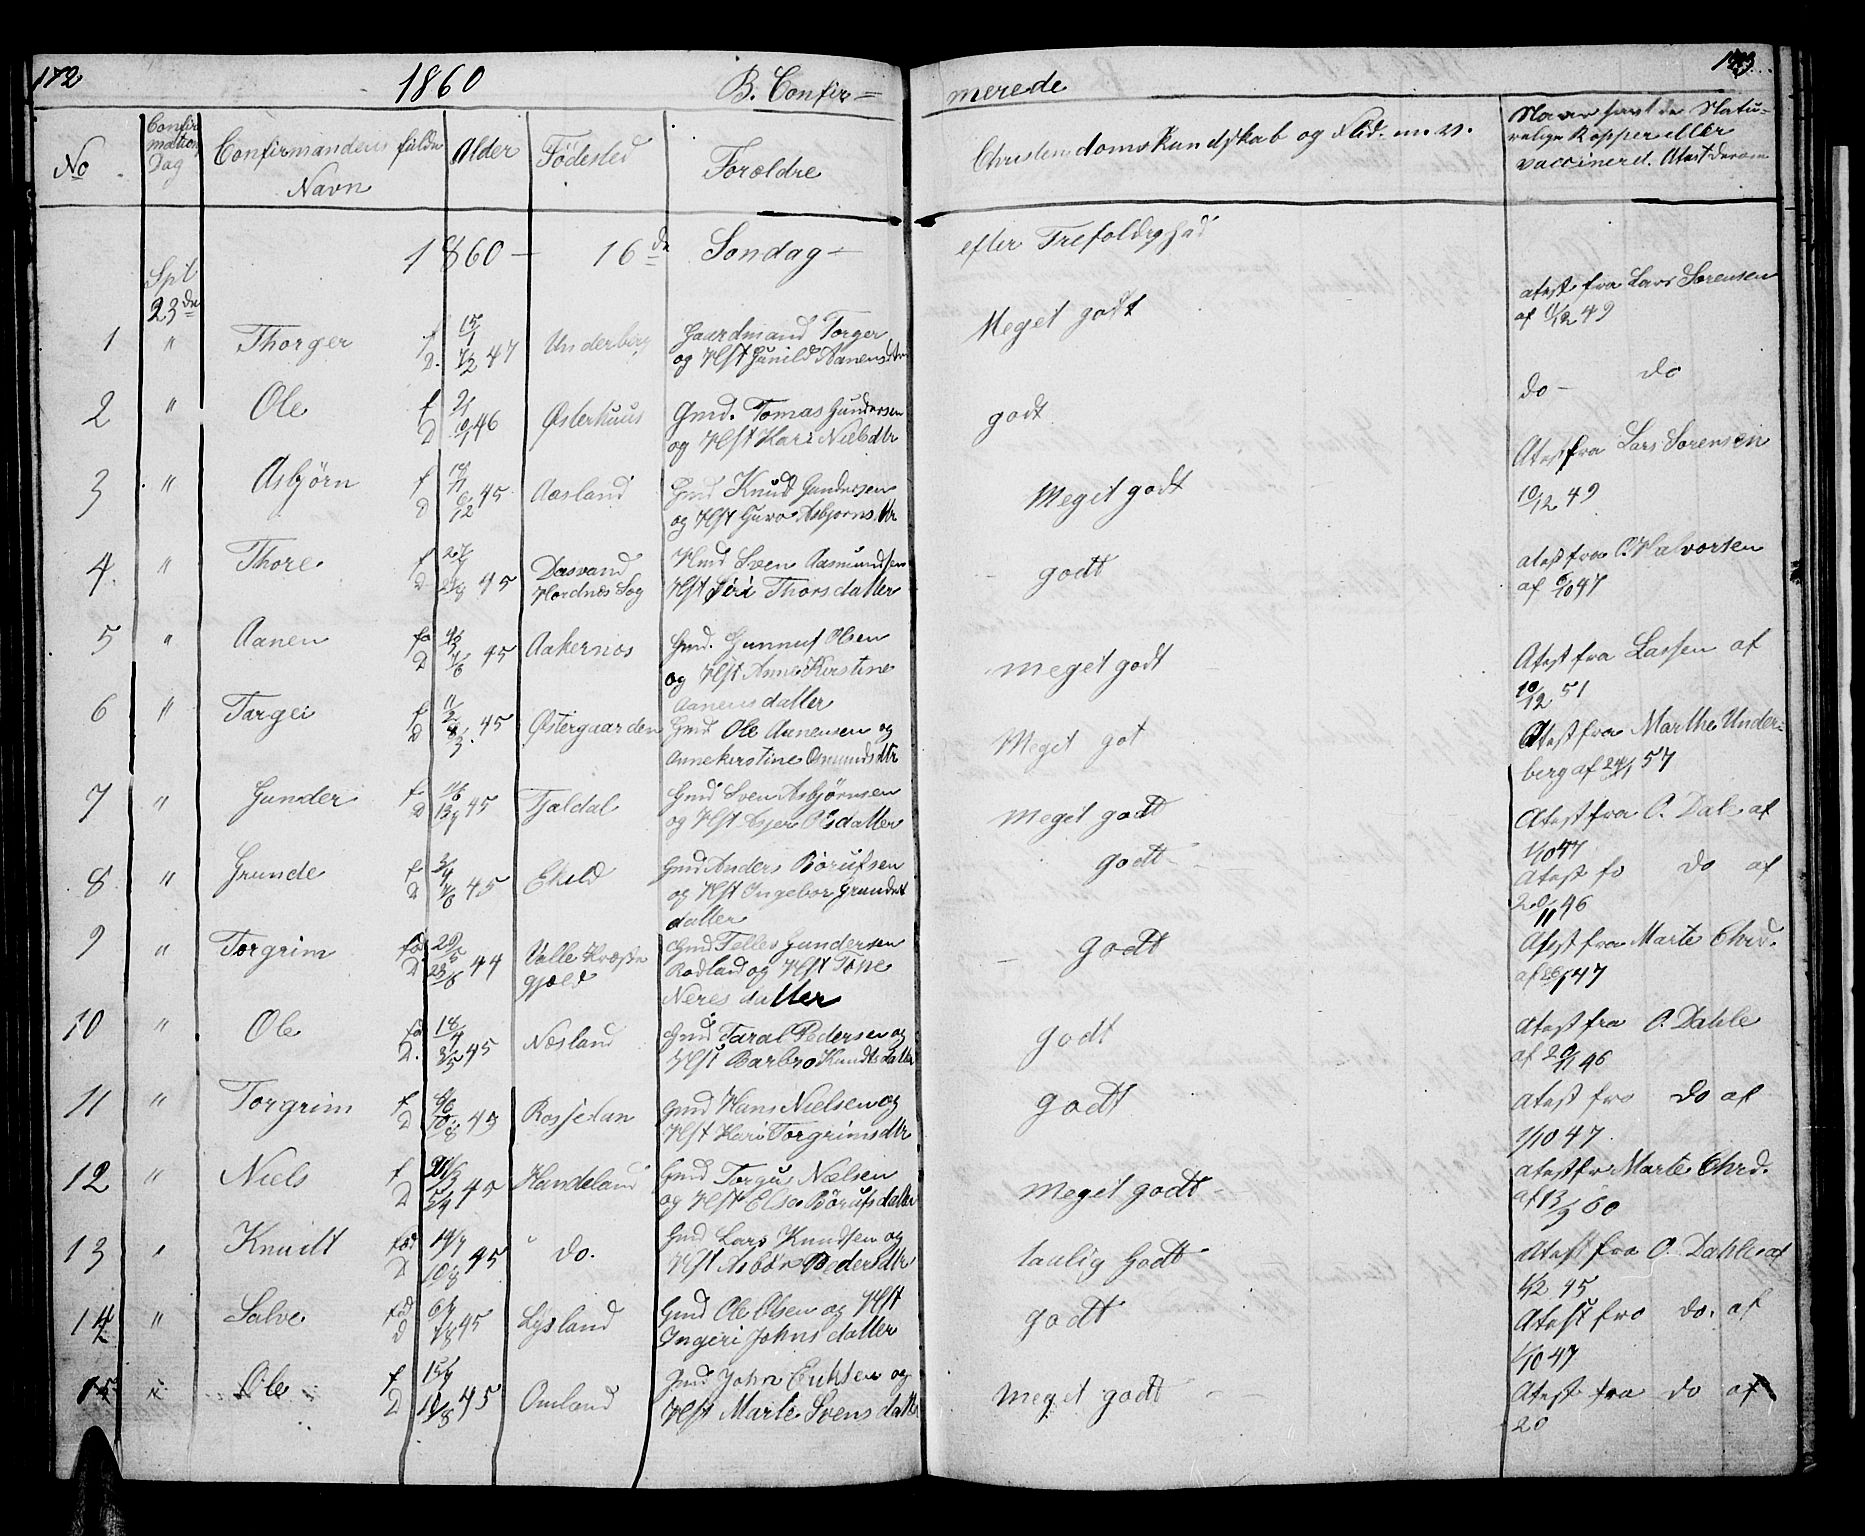 172
1860
B. Confir=
merede
173
No
Confir
mations
Dag
Confirmandens fulde
Navn
Alder
Födested
Forældre
Christendomskundskab og Flid. m. v.
Naar havt de Natu-
relige Kopper eller
vaccineret. Atest derom
Spt
23de
1860 — 16de Söndag —
efter Trefoldighed
1 " Thorger f D. 47 Underberg Gaardmand Torger
og Hst Gunild Aanensdtr
Meget godt
atest fra Lars Sorensen
af 49
2 " Ole f D 46 Østerhuus Gmd. Tomas Gundersen
og Hst Kari Nielsdtr
godt
do — do
3 " Asbjörn f D 45 Aasland Gmd Knud Gundersen
og Hst Guro Asbjornsdtr
Meget godt
Atest fra Lars Sorensen
10/12 49
4. " Thore f D 45 Dasvand
Hornnes Sog
Hmd Sven Aasmundsen
Hst Siri Thorsdatter
godt
atest fra O. Halvorsen
af 47
5 " Aanen fö D 45 Aakernes Gmd. Gunnuf Olsen
og Hst Anne Kirstine
Aanensdatter
meget godt
Atest fra Lassen af
10/12 51
6 " Targei f D 45 Östergaarden Gmd Ole Aanensen og
Annekirstine Osmundsdtr
Meget got
Atest fra Marthe Under-
berg af 57
7 " Gunder f D 45 Tjaldal Gmd Sven Asbjörnsen
og Hst Olsdatter
meget godt
Atest fra O. Dale af
1/10 47
8 " Grunde f D 45 Eheld Gmd Anders Börufsen
og Hst Ingebor Grundes
datter
godt
Atest fo do af
20/11 46
9 " Torgrim föd D. 44 Valle Præste
gjæld
Gmd Tellev Gundersen
Rodland og Hst Tone
Neresdatter
godt
Atest fra Marte Chrd.
af 47
10 " Ole fö D. 18/4 45 Næsland Gmd Taral Pedersen og
Hst Barbro Knudtsdatter
godt
atest fra O. Dahle
af 20/11 46
11 " Torgrim f D Rossedan Gmd Hans Nielsen og
Hst Kari Torgrimsdtr
godt
atest fro do af
1/10 47.
12 " Niels f D 45 Handeland Gmd Torgus Nælsen
og Hst Else Börufsdatter
meget godt
atest fr Marte Chrd.
af 13/9 60
13 " Knudt föd D 45 do. Gmd Lars Knudsen og
Hst Asbör Pedersdtr
taalig Godt
Atest fra O. Dahle af
1/2 45
14 " Salve föd d 45 Lysland Gmd Ole Olsen og Hst
Ingeri Johnsdatter
godt
Atest fro do. af
1/10 47
15 Ole f D 45 Omland Gmd John Eriksen og
Hst Marte Svensdatter
Meget godt
Atest fra do af
20